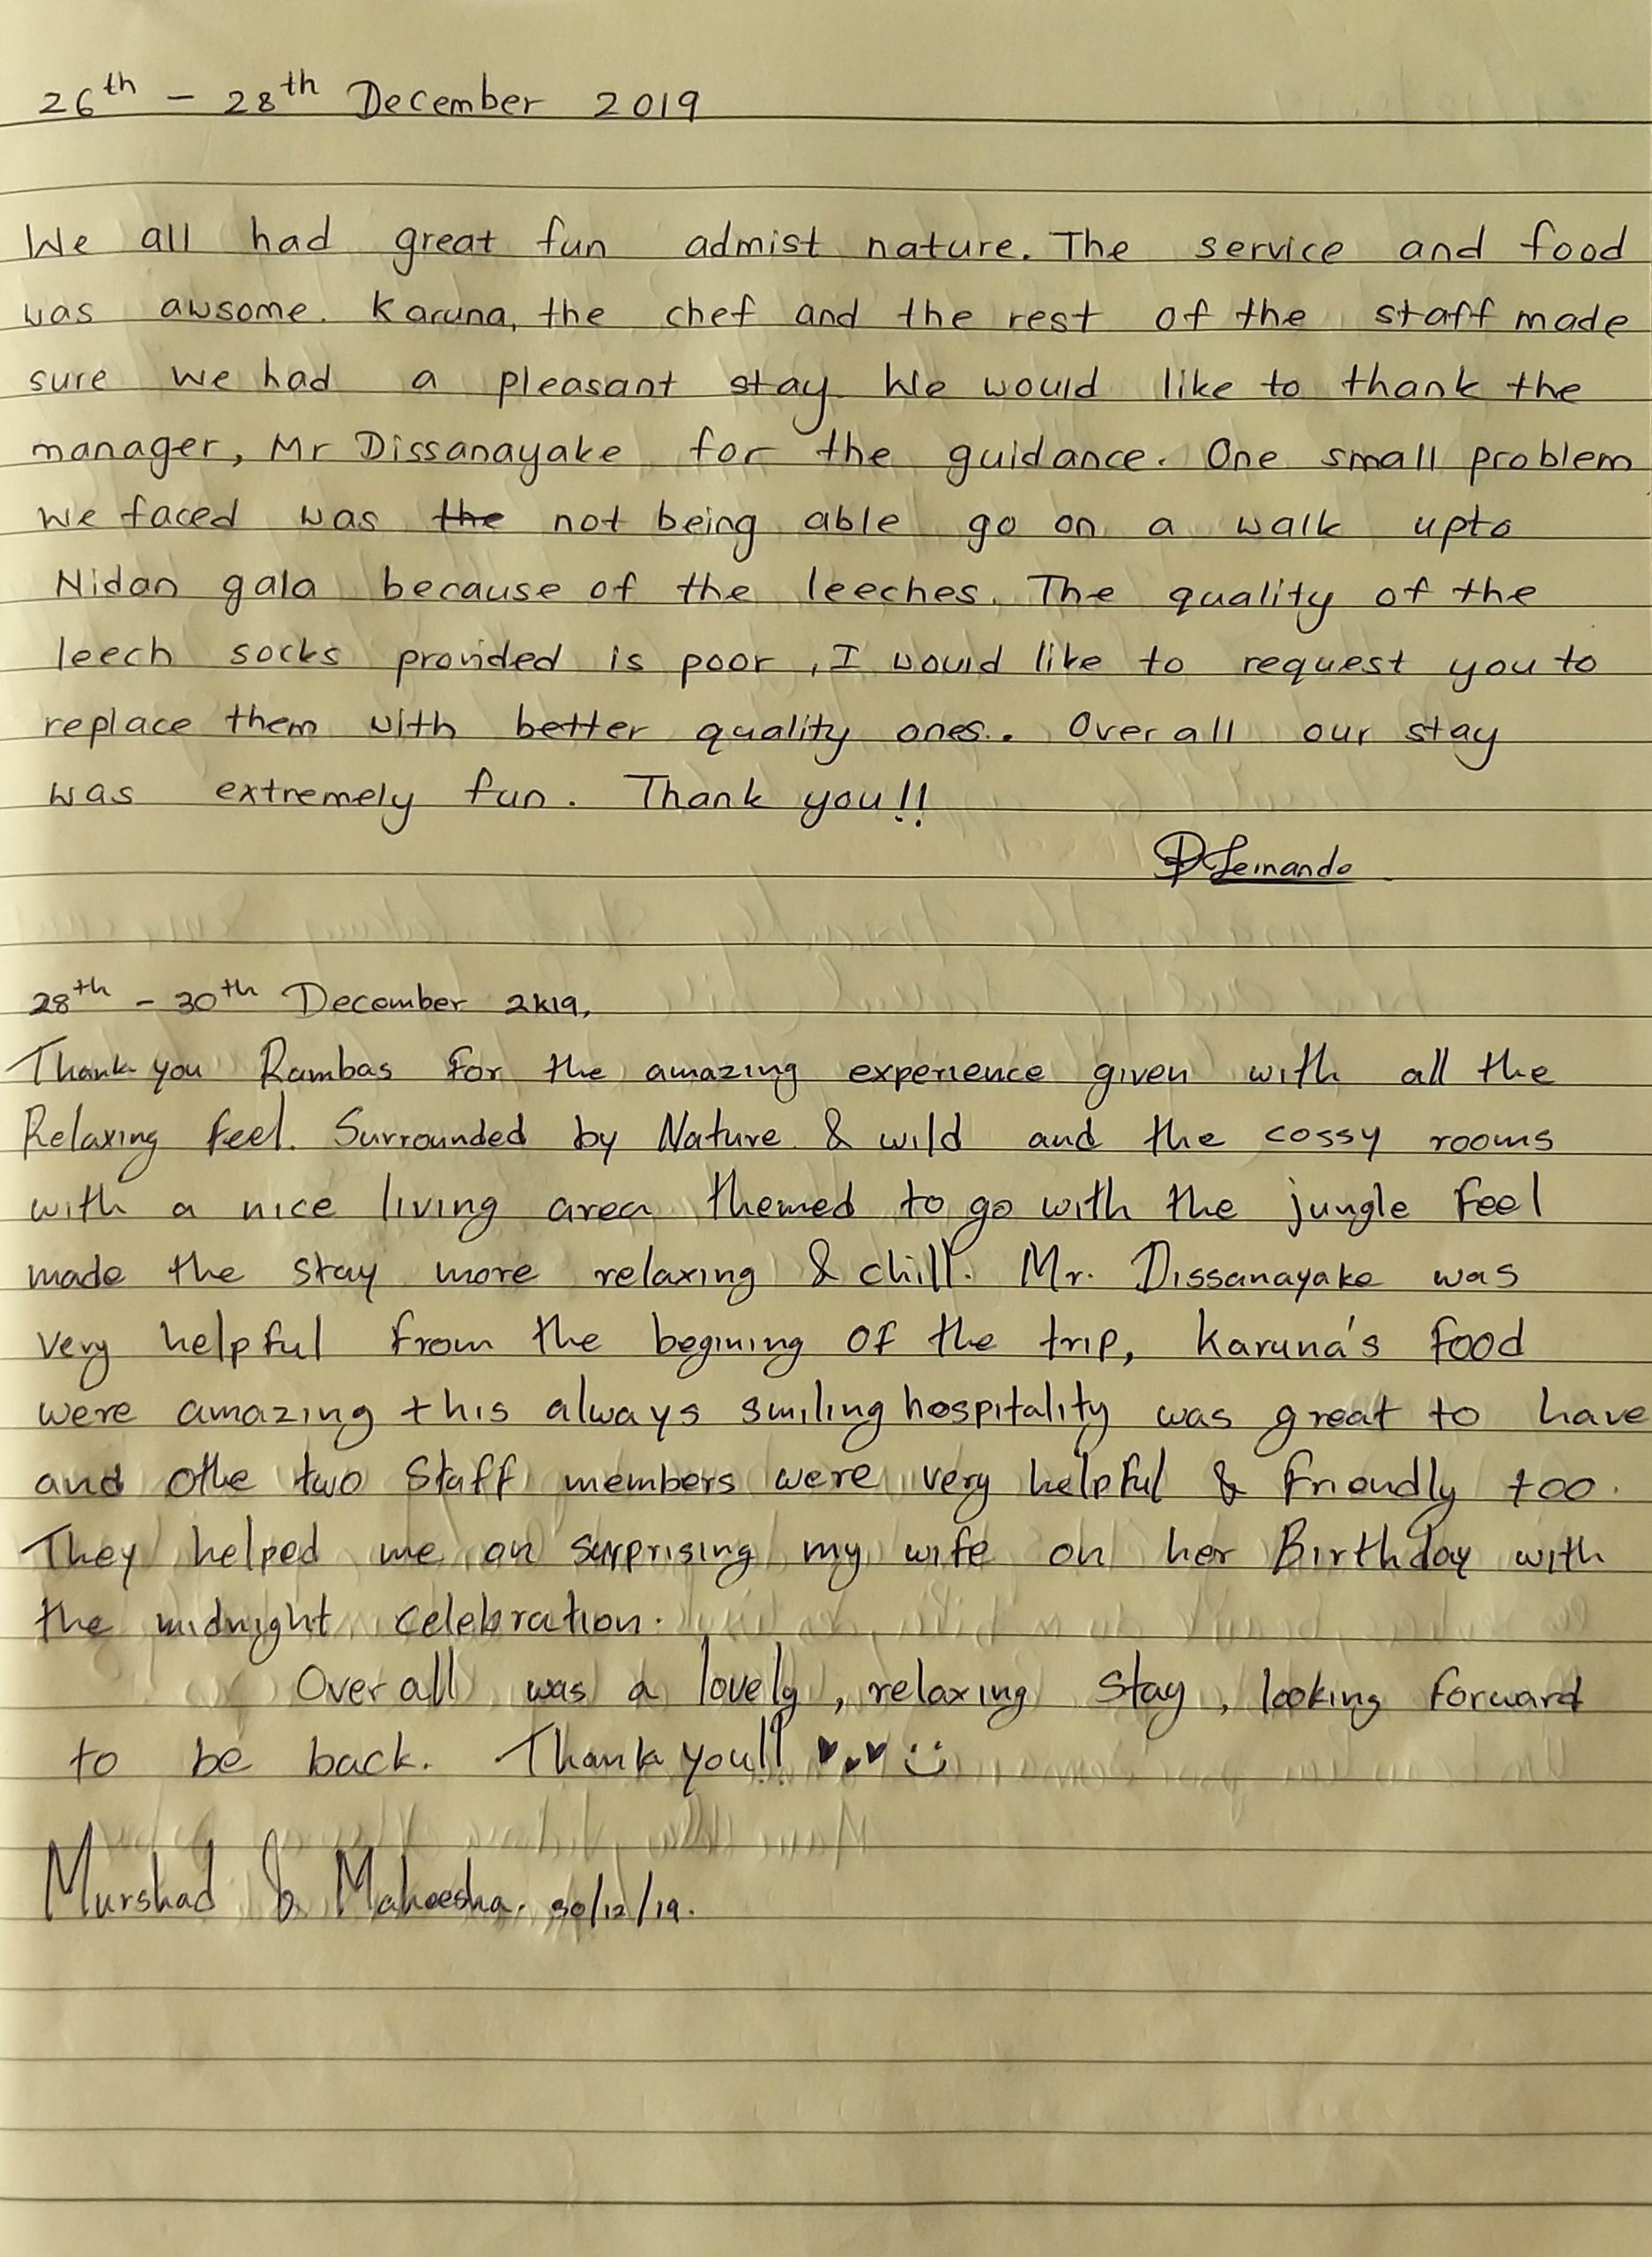 26th - 28th December 2019
We all had great fun admist nature. The service and food
was awsome. Karuna, the chef and the rest of the staff made
sure we had a pleasant stay. We would like to thank the
manager, Mr Dissanayake for the guidance. One small problem
we faced was the not being able go on a walk upto
Nidan gala because of the leeches. The quality of the
leech socks provided is poor, I would like to request you to
replace them with better quality ones.. Over all our stay
was extremely fun. Thank you!!
Fernando
28th - 30th December 2k19,
Thank you Rambas for the amazing experience given with all the
Relaxing feel. Surrounded by Nature & wild and the cossy rooms
with a nice living area themed to go with the jungle feel
made the stay more relaxing & chill. Mr. Dissanayake was
very helpful from the begining of the trip, Karuna's food
were amazing this always smiling hospitality was great to have
and othe two staff members were very helpful & friendly too.
They helped me on surprising my wife on her Birthday with
the midnight celebration.
Over all was a lovely, relaxing stay, looking forward
to be back. Thank you!! ♥.♥ :)
Murshad & Maheesha. 30/12/19.